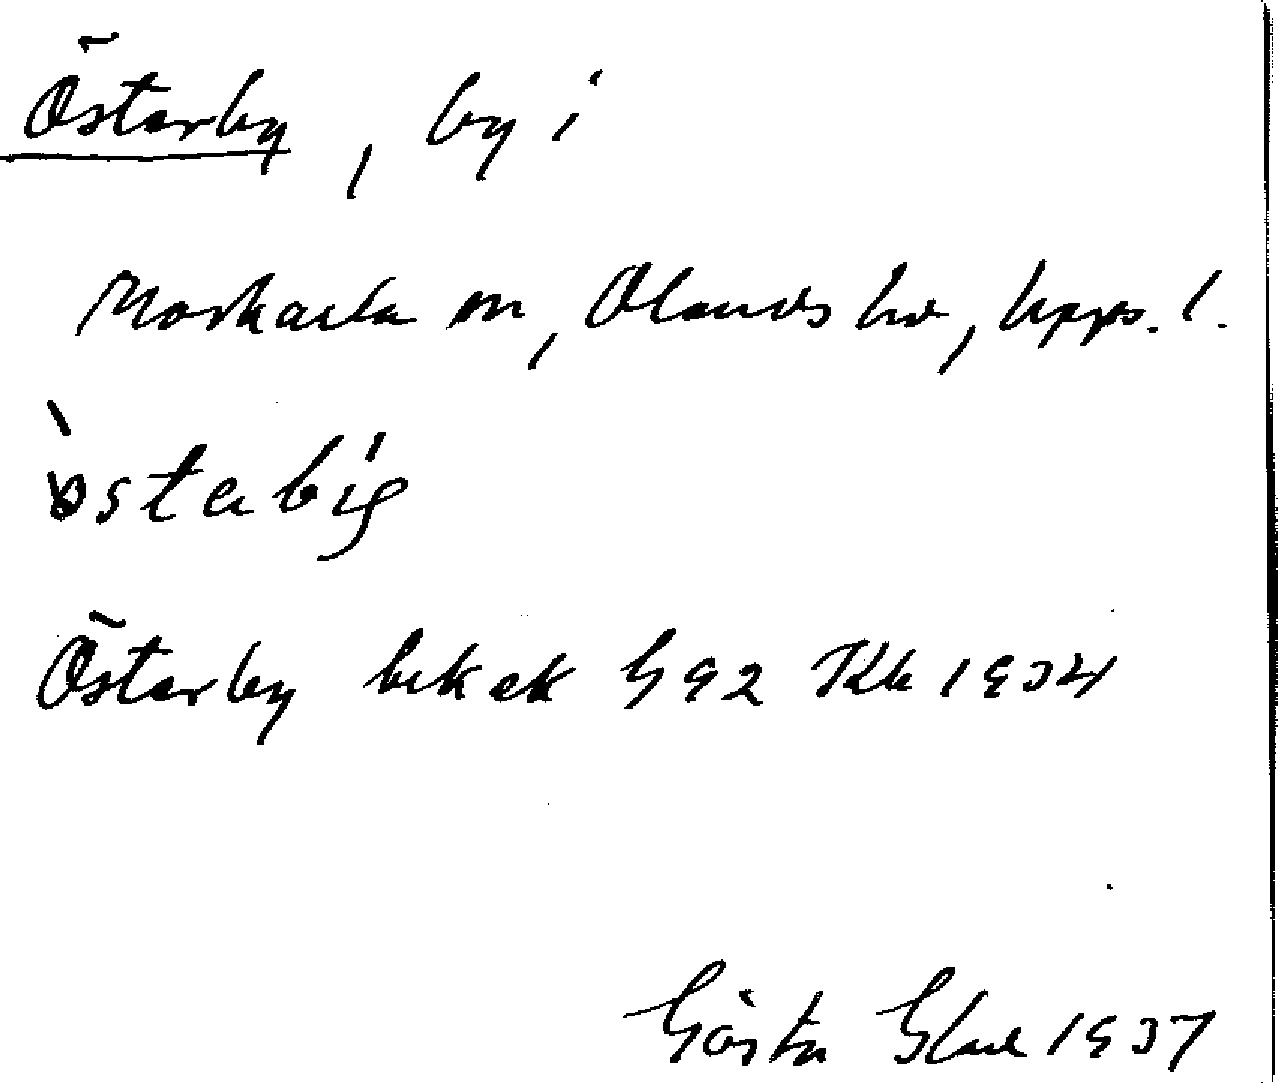 Österby, by i
Morkarla sn, Olands hd, Upps. l.
Österby bek ek 592 Kk 1934
Gösta 1937